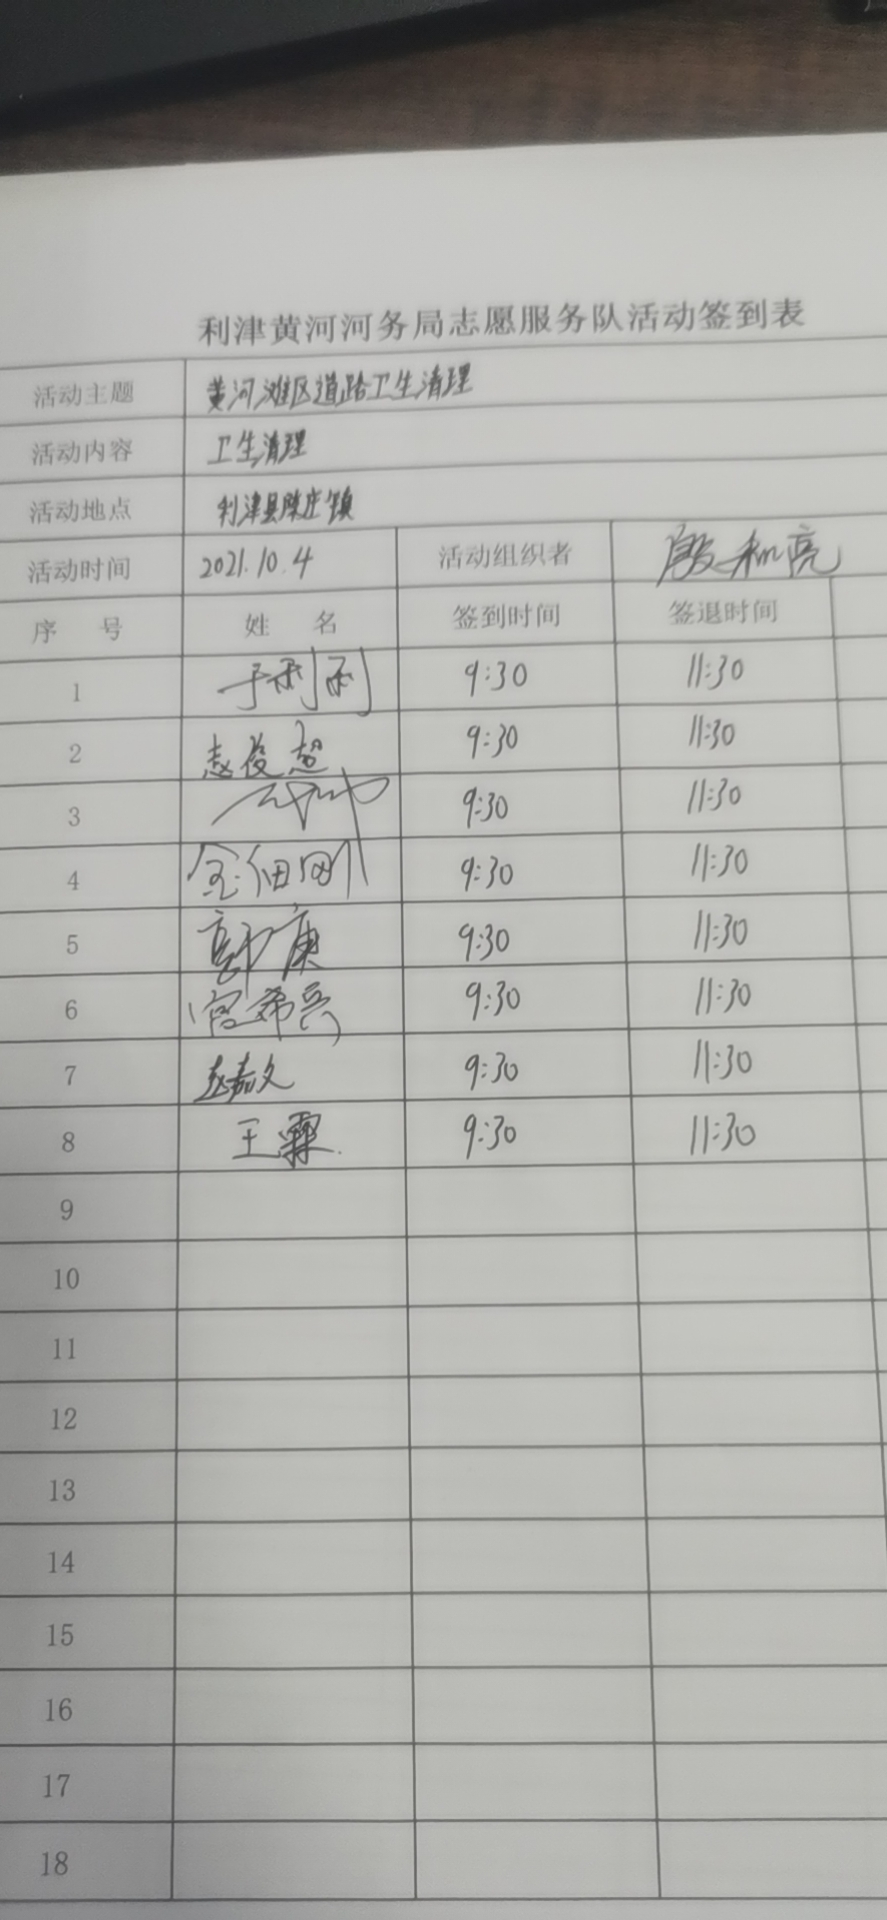 利津黄河河务局志愿服务队活动签到表
活动主题 黄河滩区道路卫生清理
活动内容 卫生清理
活动地点 利津县陈庄镇
活动时间 2021.10.4 活动组织者 殷和亮
序 号 姓 名 签到时间 签退时间
1 于利利 9:30 11:30
2 赵俊超 9:30 11:30
3 9:30 11:30
4 金佃刚 9:30 11:30
5 郭康 9:30 11:30
6 宫希兵 9:30 11:30
7 赵嘉文 9:30 11:30
8 王霖 9:30 11:30
9
10
11
12
13
14
15
16
17
18